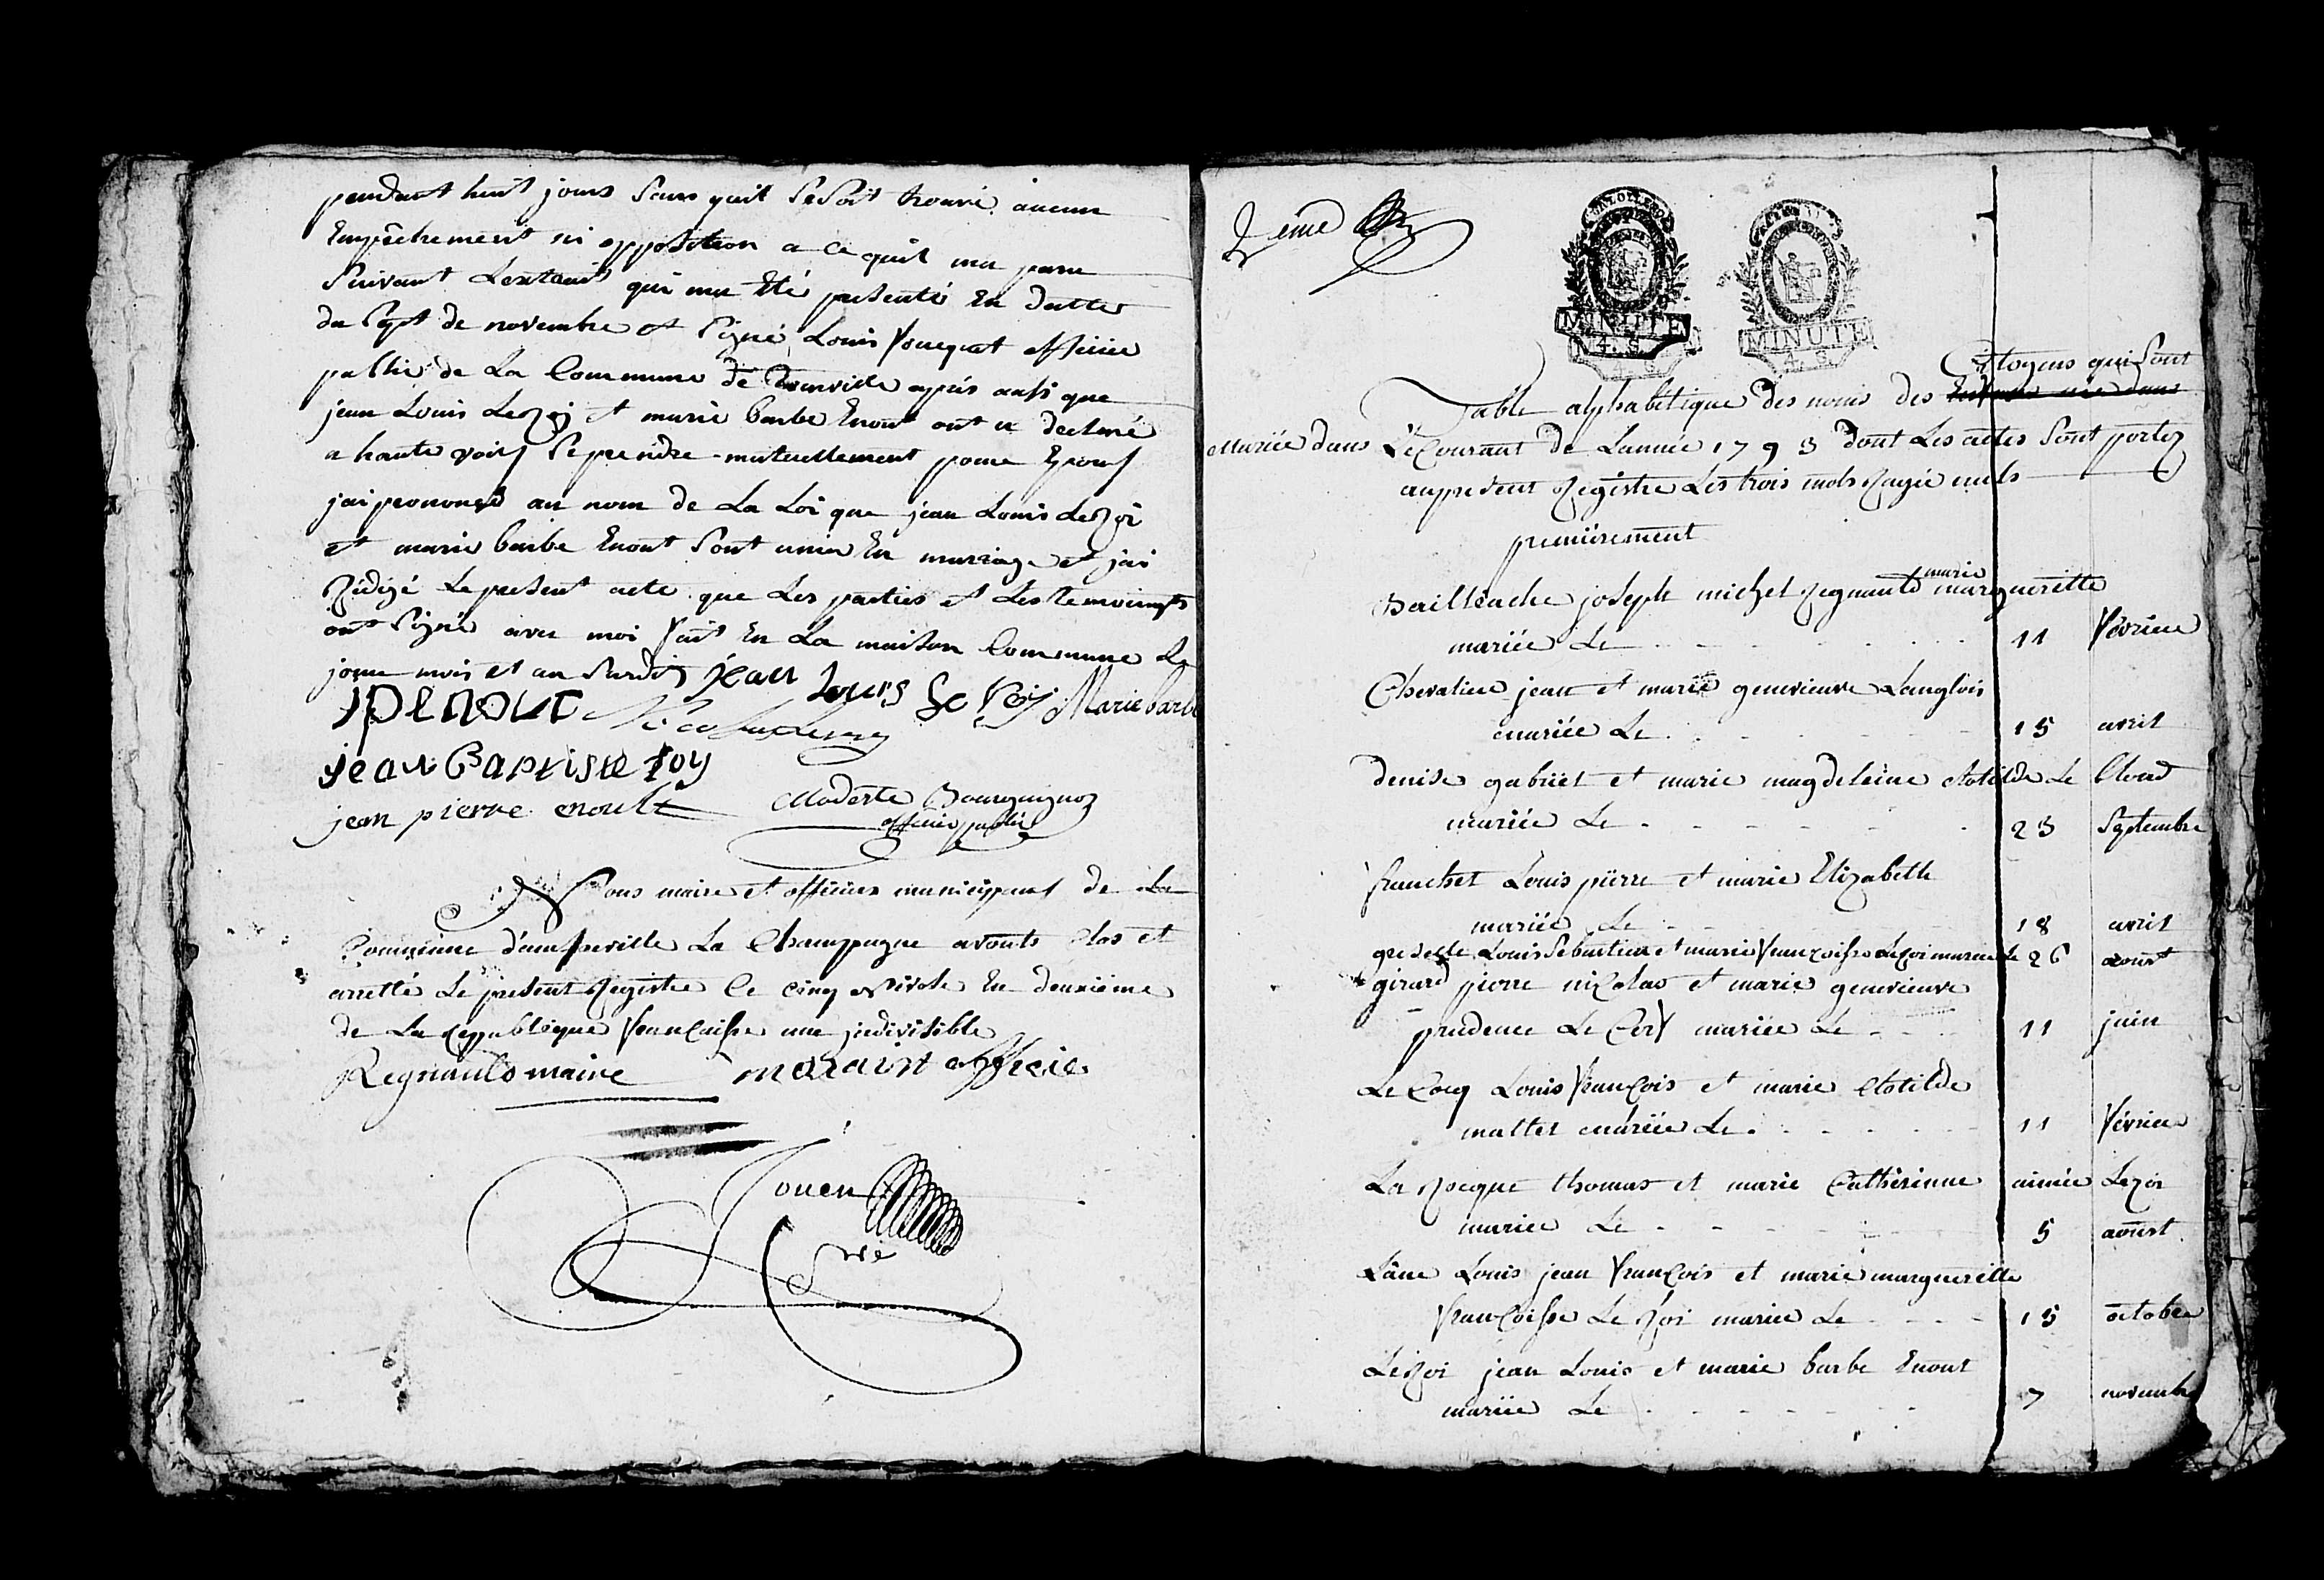 pendant huit jours sans quil se soit trouvé aucun
Empêchement ni opposition a ce quil ma paru
suivant Lextrait qui ma Eté presenté En datte
du sept de novembre et signé Louis fouquet officier
public de La Commune de après aussi que
jean Louis LeRoi et marie barbe Enout ont u declaré
a haute voix se prendre mutuellement pour Epoux
jai prononcé au nom de La Loi que jean Louis LeRoi
et marie barbe Enout sont unis En mariage et jai
Rédigé Le present acte que Les parties et Les temoings
ont signé avec moi fait En La maison Commune Le
jour mois et an susdit jean louis Le Roy Marie barbe
JPENOUT
jean Baptiste roy
jean pierre enoult Modeste Bourguignon
officier public
Nous maire et officiers municipaux de La
Commune damfreville La Champagne avonts Clos et
arretté Le present Registre Ce cinq Nivose En deuxième
de La Republique francaisse une indivisible
Regnault maire morain officie
Jouen
sre
2eme
MINUTE
4. S.
MINUTE
4. S.
Citoyens qui sont
Table alphabétique des noms des
Mariée dans Le Courant de Lannée 1793 dont Les actes sont portez
au present Registre Les trois mots Rayée nuls
premièrement
marie
Bailleache joseph michel Regnault margueritte
mariée Le 11 février
Chevalier jean et marie genevieuve Langlois
mariée Le 15 avril
denise gabriel et marie magdeleine clotilde Le Clerd
mariée Le 23 septembre
franchet Louis pierre et marie Elizabeth
mariée Le 18 avril
Louis sebastien et marie francoisse Leroi mariée Le 26 aoust
girard pierre nicolas et marie genevieuve
prudence Le Cerf mariée Le 11 juin
Le Coq Louis françois et marie Clotilde
mallet mariée Le 11 février
La Rocque thomas et marie Catherinne aimée Leroi
mariée Le 5 aoust
Lâne Louis jean françois et marie margueritte
francoisse Le Roi mariée Le 15 octobre
LeRoi jean Louis et marie barbe Enout
mariée Le 7 novembre